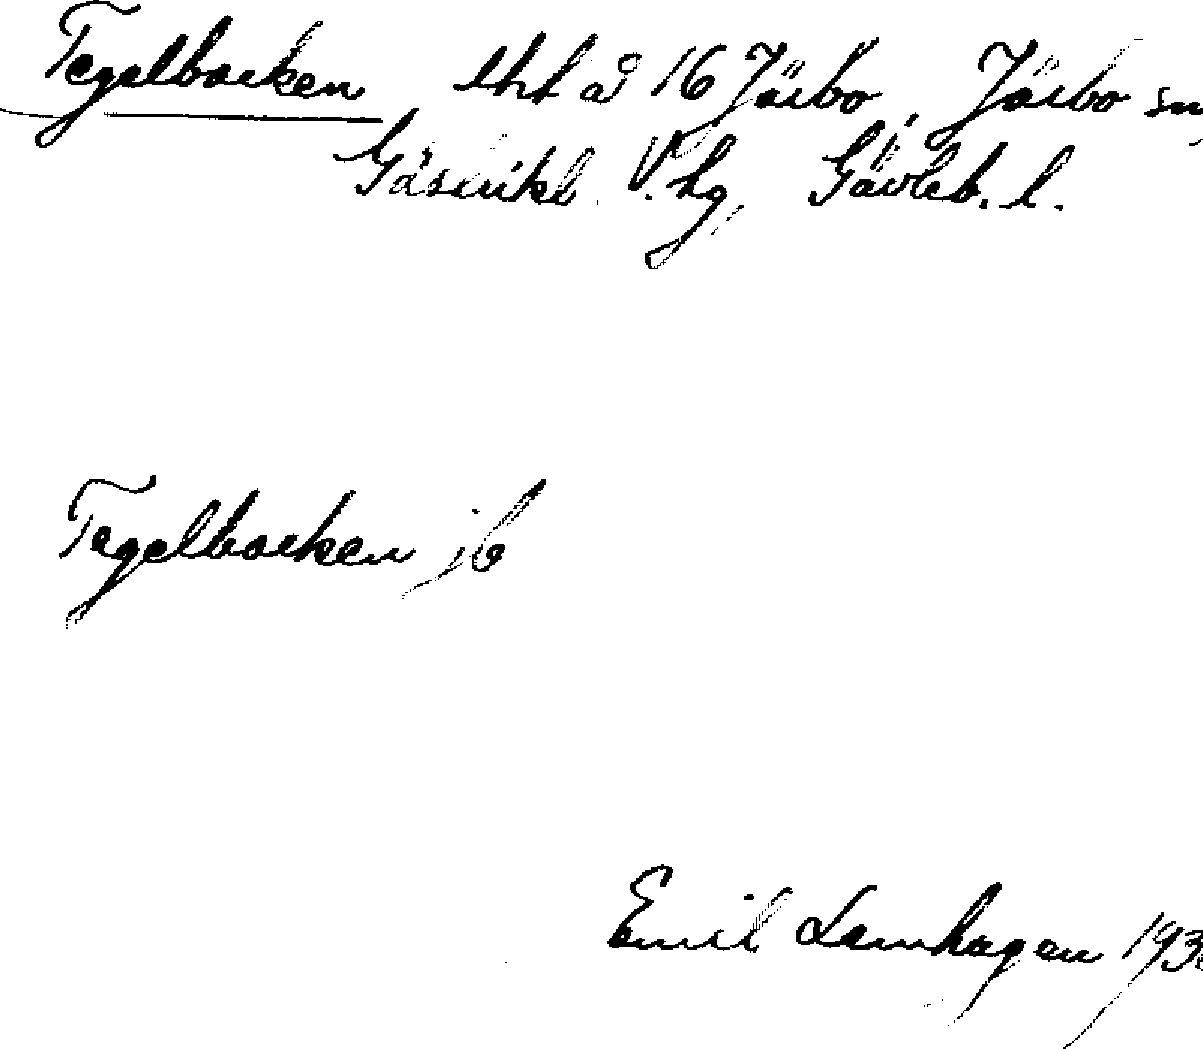 Tegelbacken, tht å 16 Järbo, Järbo sn,
Gästrikl. V. hg, Gävleb. l.
Tegelbacken jb
Emil Lamhagen